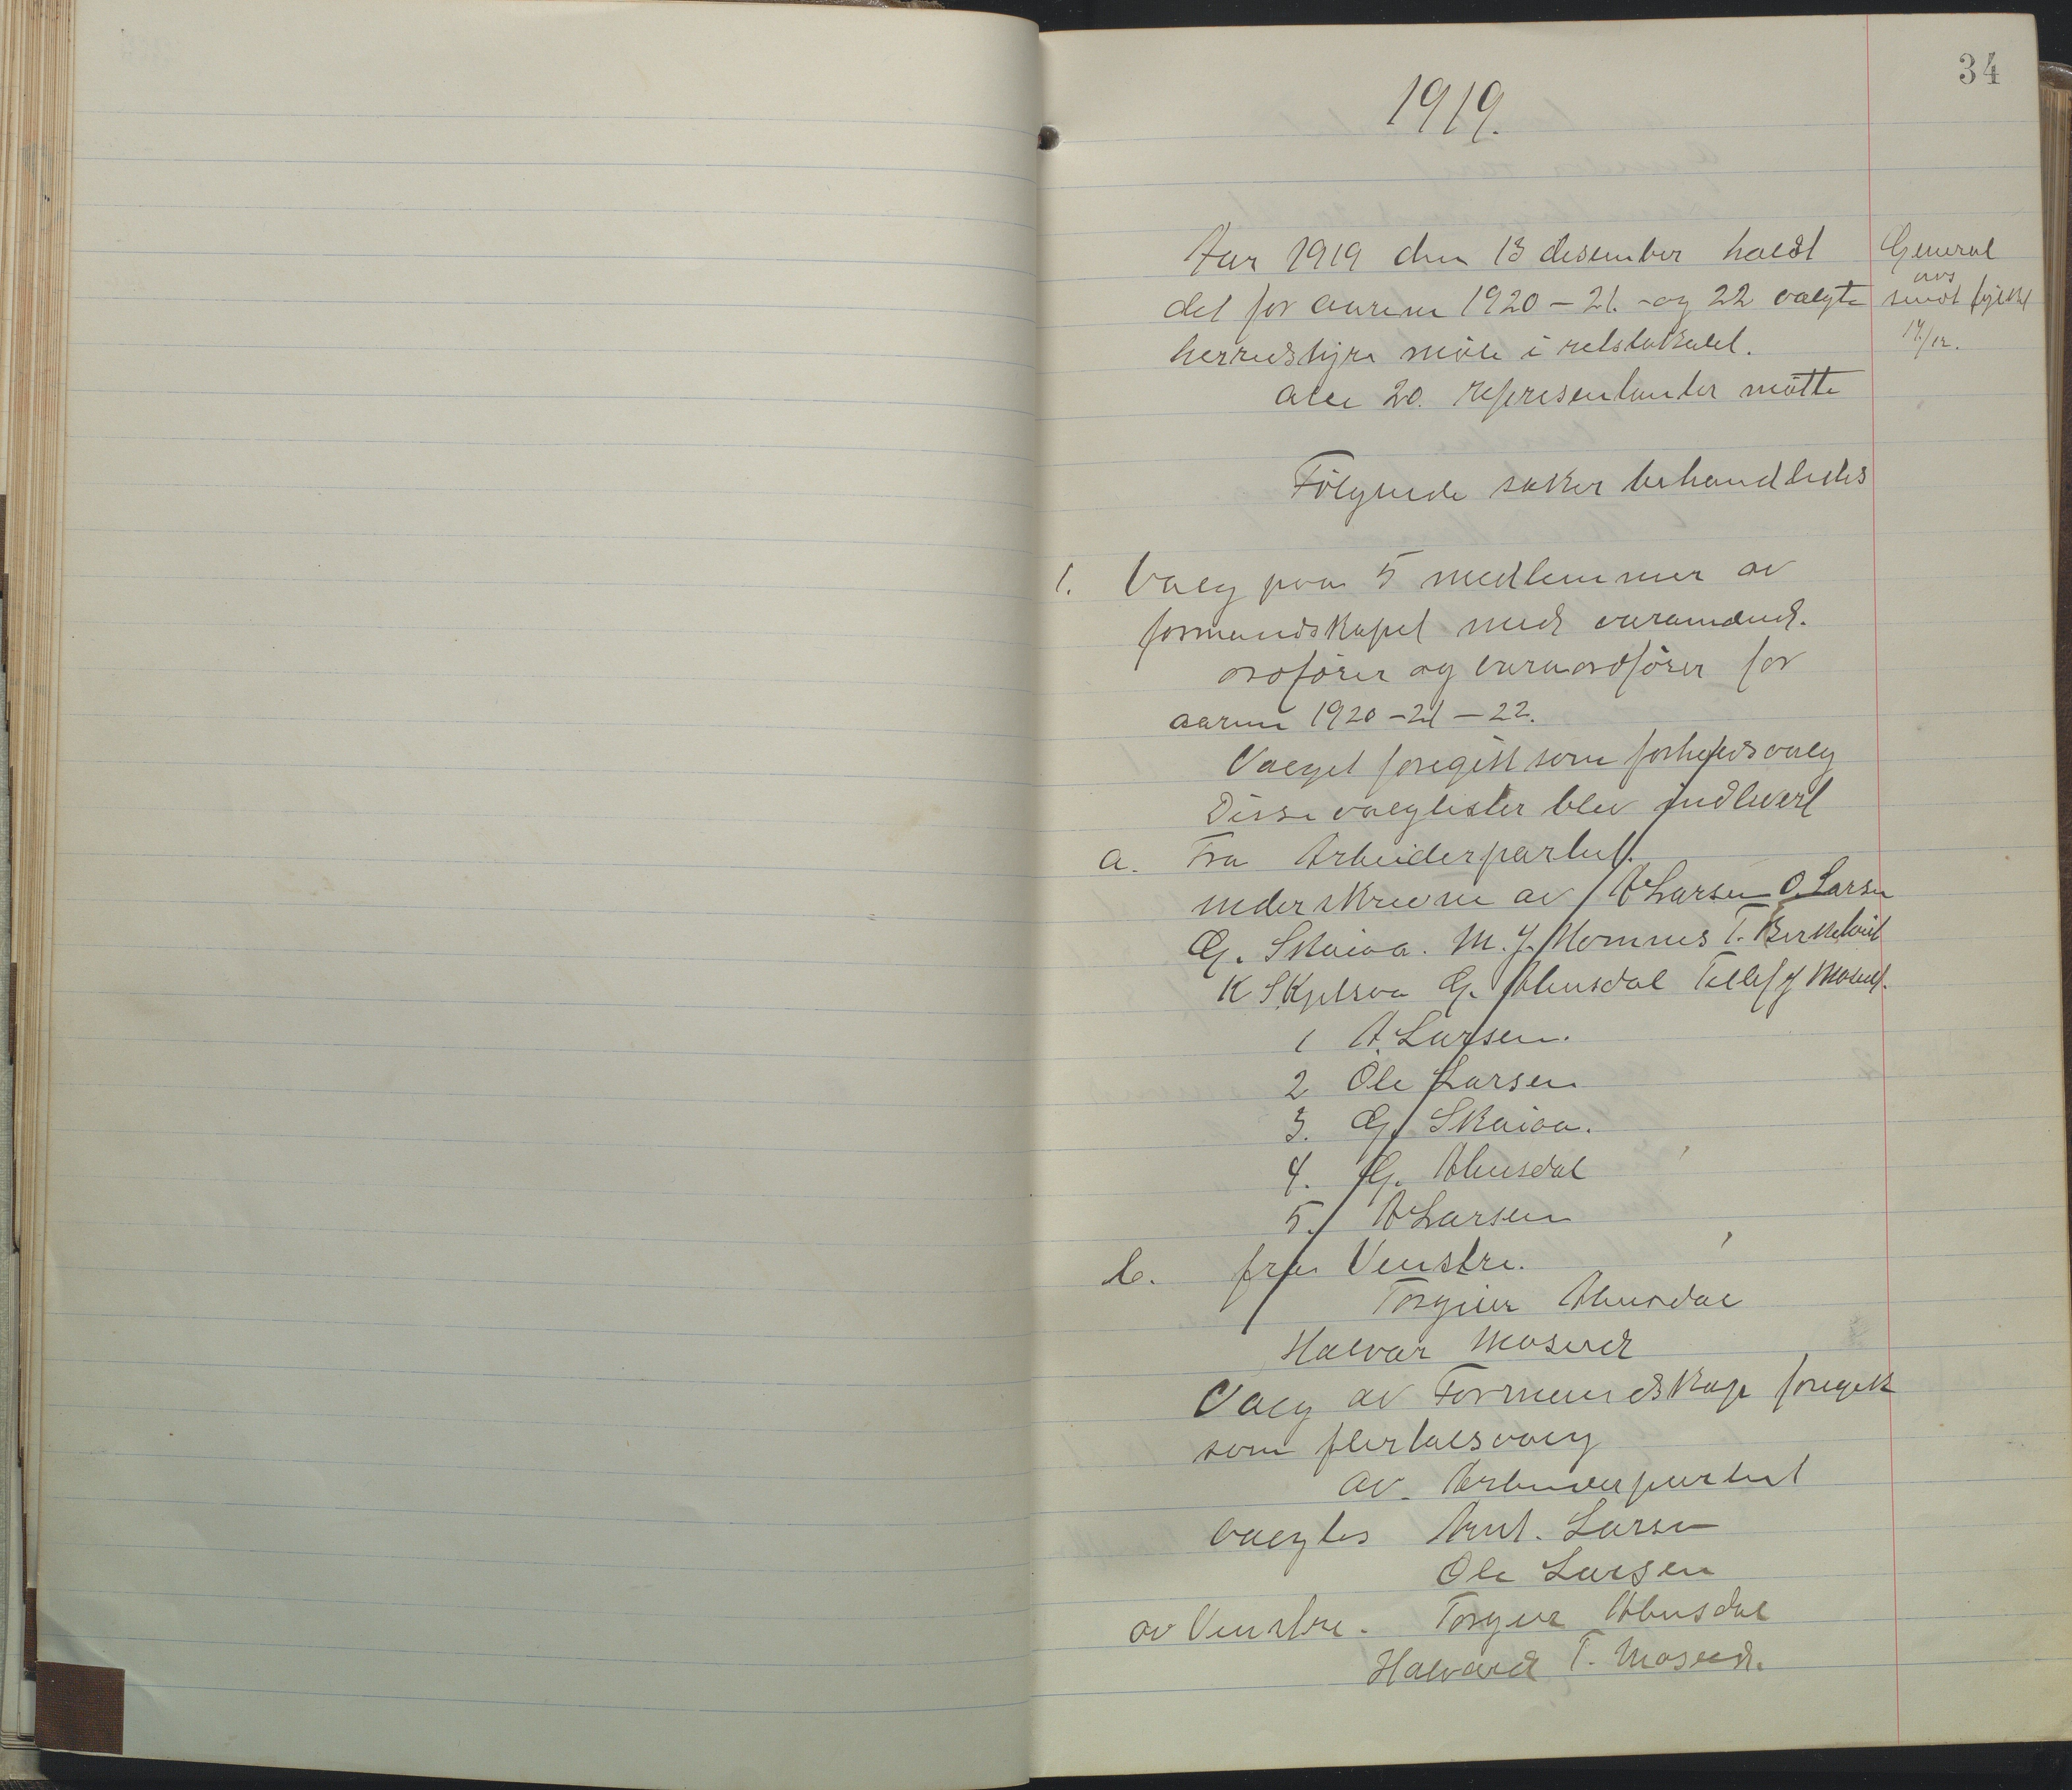 34
1919.
Aar 1919 den 13 desember holdt
det for aarene 1920 – 21. og 22 valgte
herredstyre møte i retslokalet.
Alle 20. representanter møtte
General
avs
sendt fylket
17/12.
Følgende saker behandledes
1. Valg paa 5 medlemmer av
formandskapet med varamænd.
ordfører og varaordfører for
aarene 1920 – 21 – 22.
Valget foregik som forholdsvalg
Disse valglister blev indlevert
a. Fra Arbeiderpartiet.
underskrevne av A Larsen O. Larsen
G. Skaiaa. M. J. Homnes T. Birkeland
K Skjelsva G. Ahusdal Tellef J Moseid.
1 A. Larsen.
2 Ole Larsen
3. G. Skaiaa.
4. G. Ahusdal
5. A Larsen
b. fra Venstre.
Torgeir Ahusdal
Halvar Moseid
Valg av Formandskap foregik
som flertalsvalg
av Arbeiderpartiet
valgtes Ant. Larsen
Ole Larsen
av Venstre. Torgeir Ahusdal
Halvard T. Moseid.